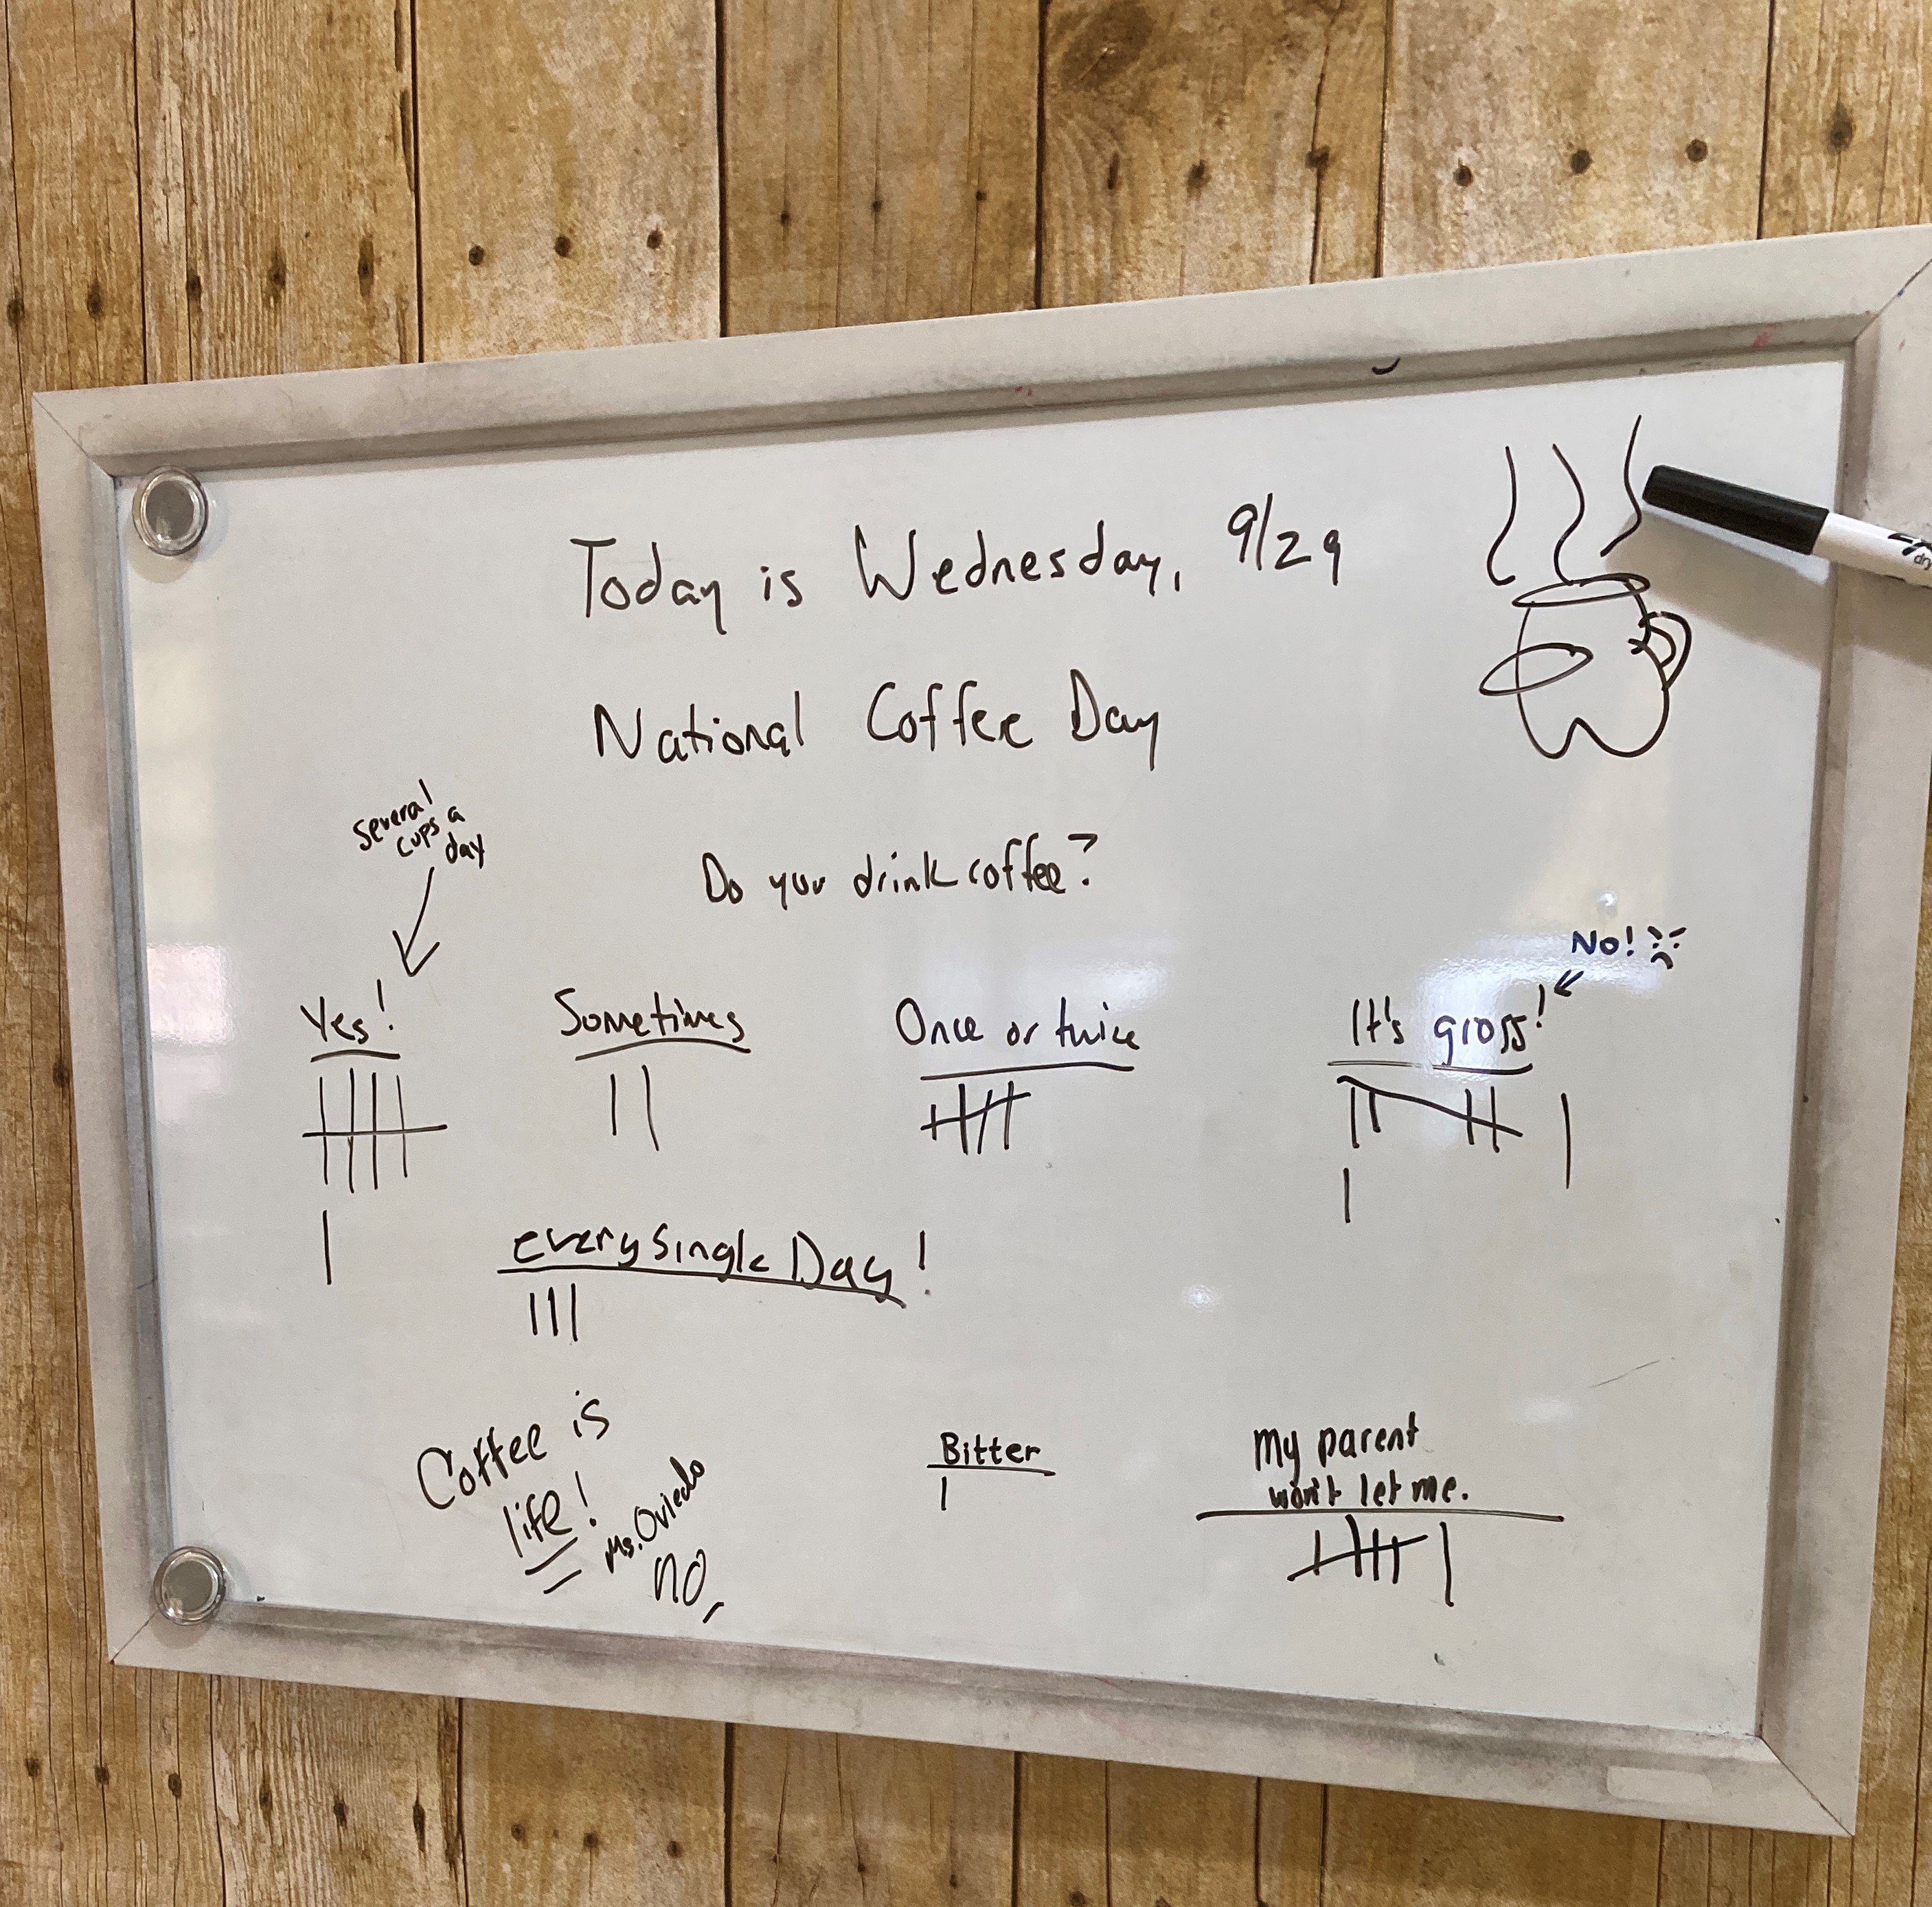 Today is Wednesday, 9/29
National Coffee Day
Several
cups a
day
Do you drink coffee?
No!
Yes!
Sometimes
Once or twice
It's gross!
every single Day!
Coffee is
life!
Ms. Oviedo
no,
Bitter
My parent
won't let me.